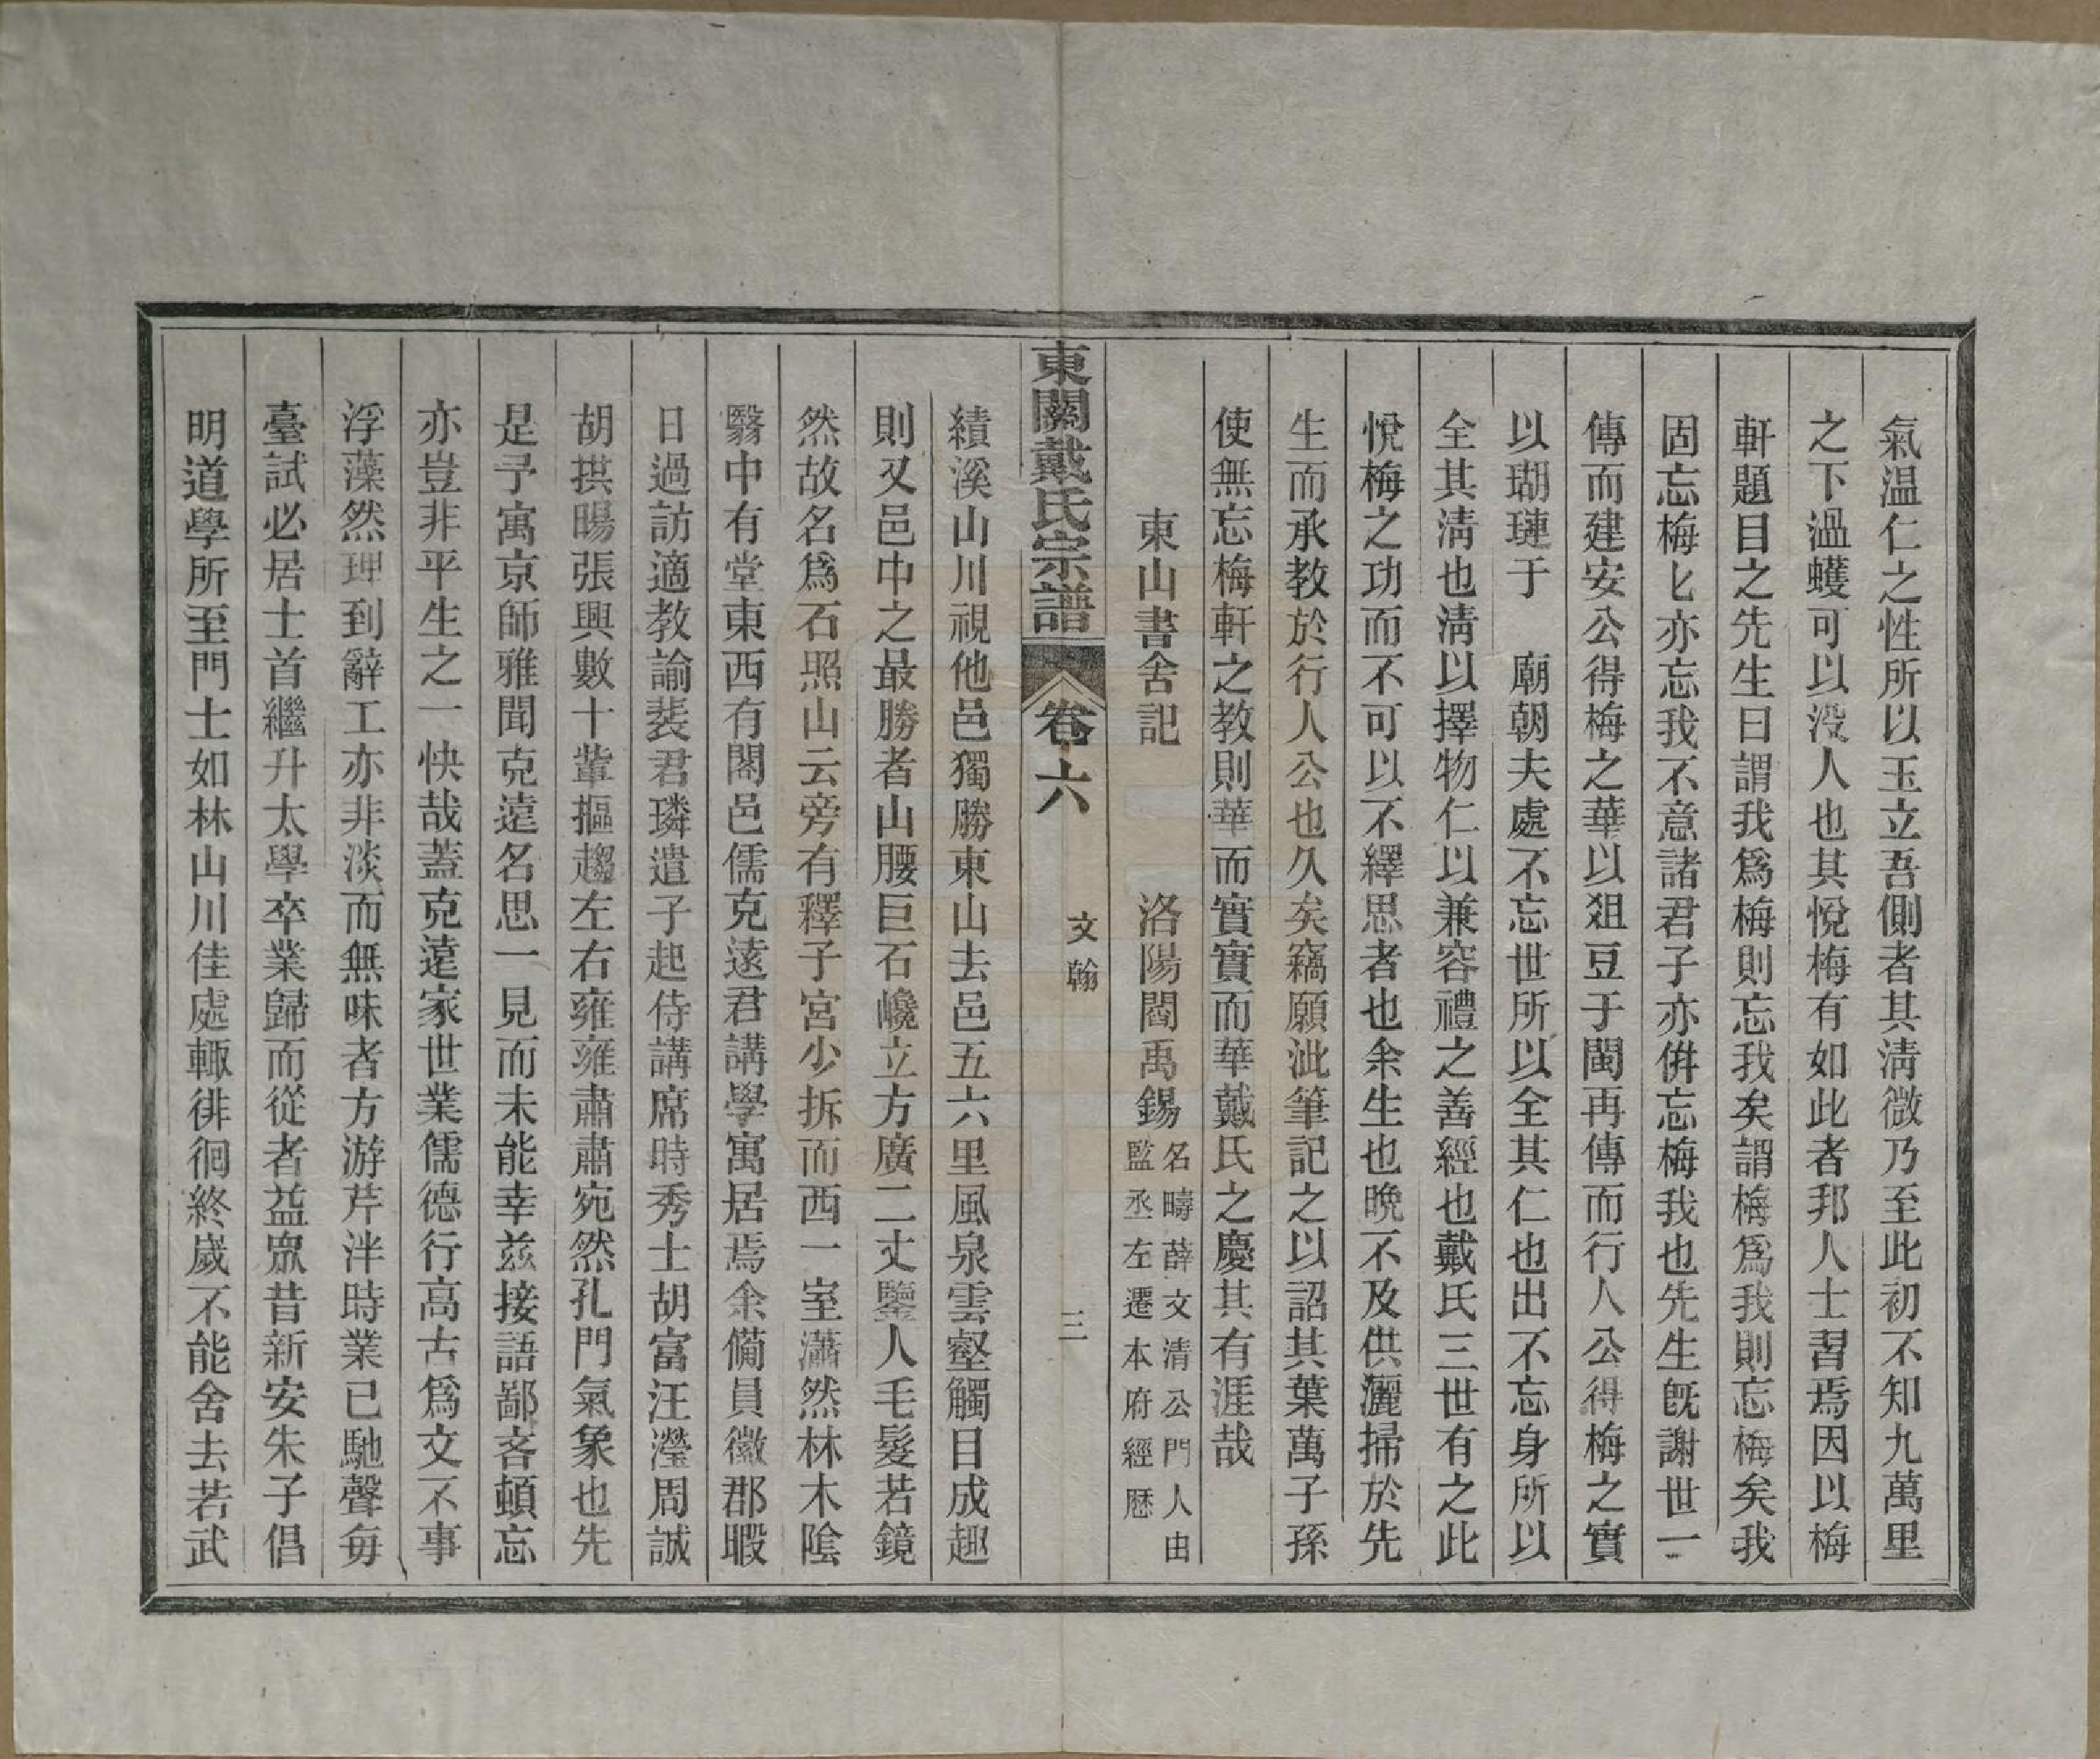 氣溫仁之性所以玉立吾側者其淸微乃至此初不知九萬里
之下溫蠖可以沒人也其悅梅有如此者邦人士習焉因以梅
軒題目之先生曰謂我爲梅則忘我矣謂梅爲我則忘梅矣我
固忘梅匕亦忘我不意諸君子亦倂忘梅我也先生旣謝世一
傳而建安公得梅之華以爼豆于閩再傳而行人公得梅之實
以瑚璉于　廟朝夫處不忘世所以全其仁也出不忘身所以
全其淸也淸以擇物仁以兼容禮之善經也戴氏三世有之此
悅梅之功而不可以不繹思者也余生也晩不及供灑掃於先
生而承教於行人公也久矣竊願泚筆記之以詔其葉萬子孫
使無忘梅軒之教則華而實實而華戴氏之慶其有涯哉
東山書舍記　洛陽閻禹錫
名疇薛文清公門人由
監丞左遷本府經歷
東關戴氏宗譜　卷六　文翰　三
績溪山川視他邑獨勝東山去邑五六里風泉雲壑觸目成趣
則又邑中之最勝者山腰巨石巉立方廣二丈鑒人毛髮若鏡
然故名爲石照山云旁有釋子宮少拆而西一室瀟然林木陰
翳中有堂東西有閣邑儒克遠君講學寓居焉余備員徽郡暇
日過訪適教諭裴君璘遣子起侍講席時秀士胡富汪瀅周誠
胡拱暘張興數十輩摳趨左右雍雍肅肅宛然孔門氣象也先
是予寓京師雅聞克遠名思一見而未能幸茲接語鄙吝頓忘
亦豈非平生之一快哉蓋克遠家世業儒德行高古爲文不事
浮藻然理到辭工亦非淡而無味者方游芹泮時業已馳聲每
臺試必居士首繼升太學卒業歸而從者益眾昔新安朱子倡
明道學所至門士如林山川佳處輙徘徊終歲不能舍去若武